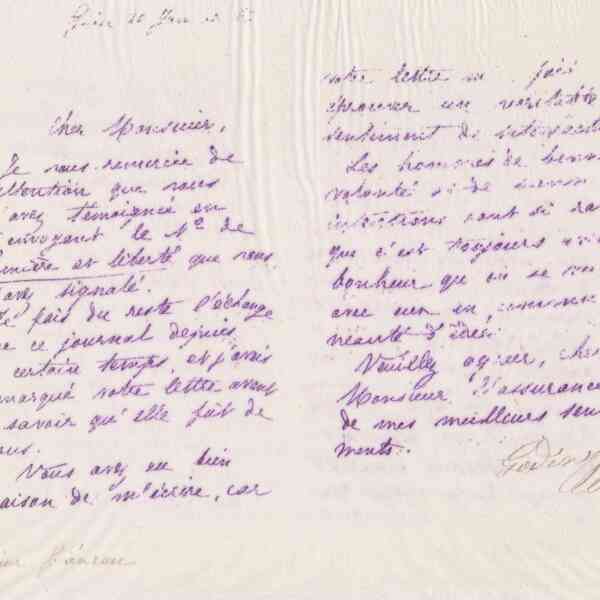 Cher Monsieur,
Je vous remercie de
attention que vous
avez témoignée en
envoyant le N° de
mière et liberté que vous
avez signalé.
Je fais du reste l'échange
ce journal depuis
certain temps, et j'avais
marqué votre lettre avant
savoir qu'elle fût de
ous.
Vous avez eu bien
aison de m'écrire, car
votre lettre m' fait
éprouver un véritable
sentiment de
Les hommes de bonne
volonté et de
intentions sont si ra
que c'est toujours
bonheur que on se
avec un en commu
nauté d'idées.
Veuillez agréer, cher
Monsieur l'assurance
de mes meilleurs senti
ments.
Godin